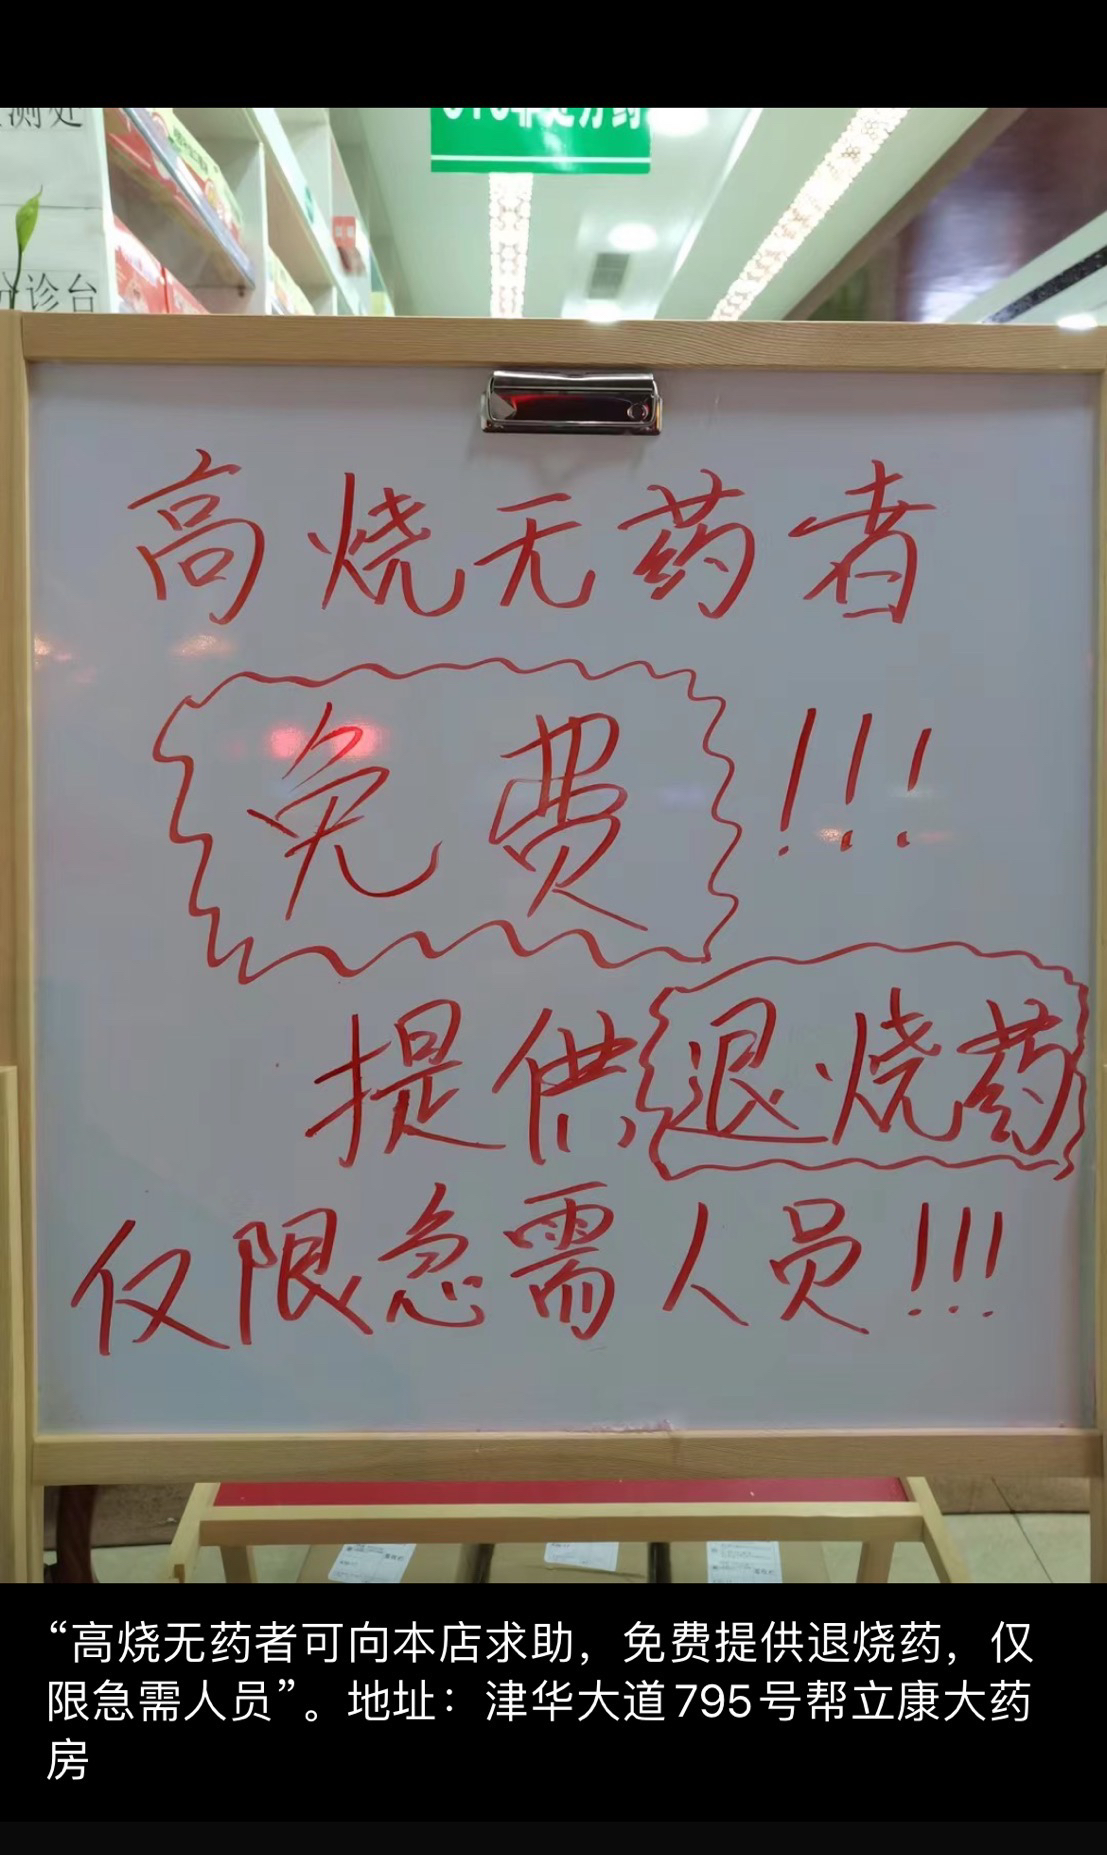 测处
OTC非处方药
分诊台
高烧无药者
免费!!!
提供退烧药
仅限急需人员!!!
“高烧无药者可向本店求助，免费提供退烧药，仅
限急需人员”。地址：津华大道795号帮立康大药
房